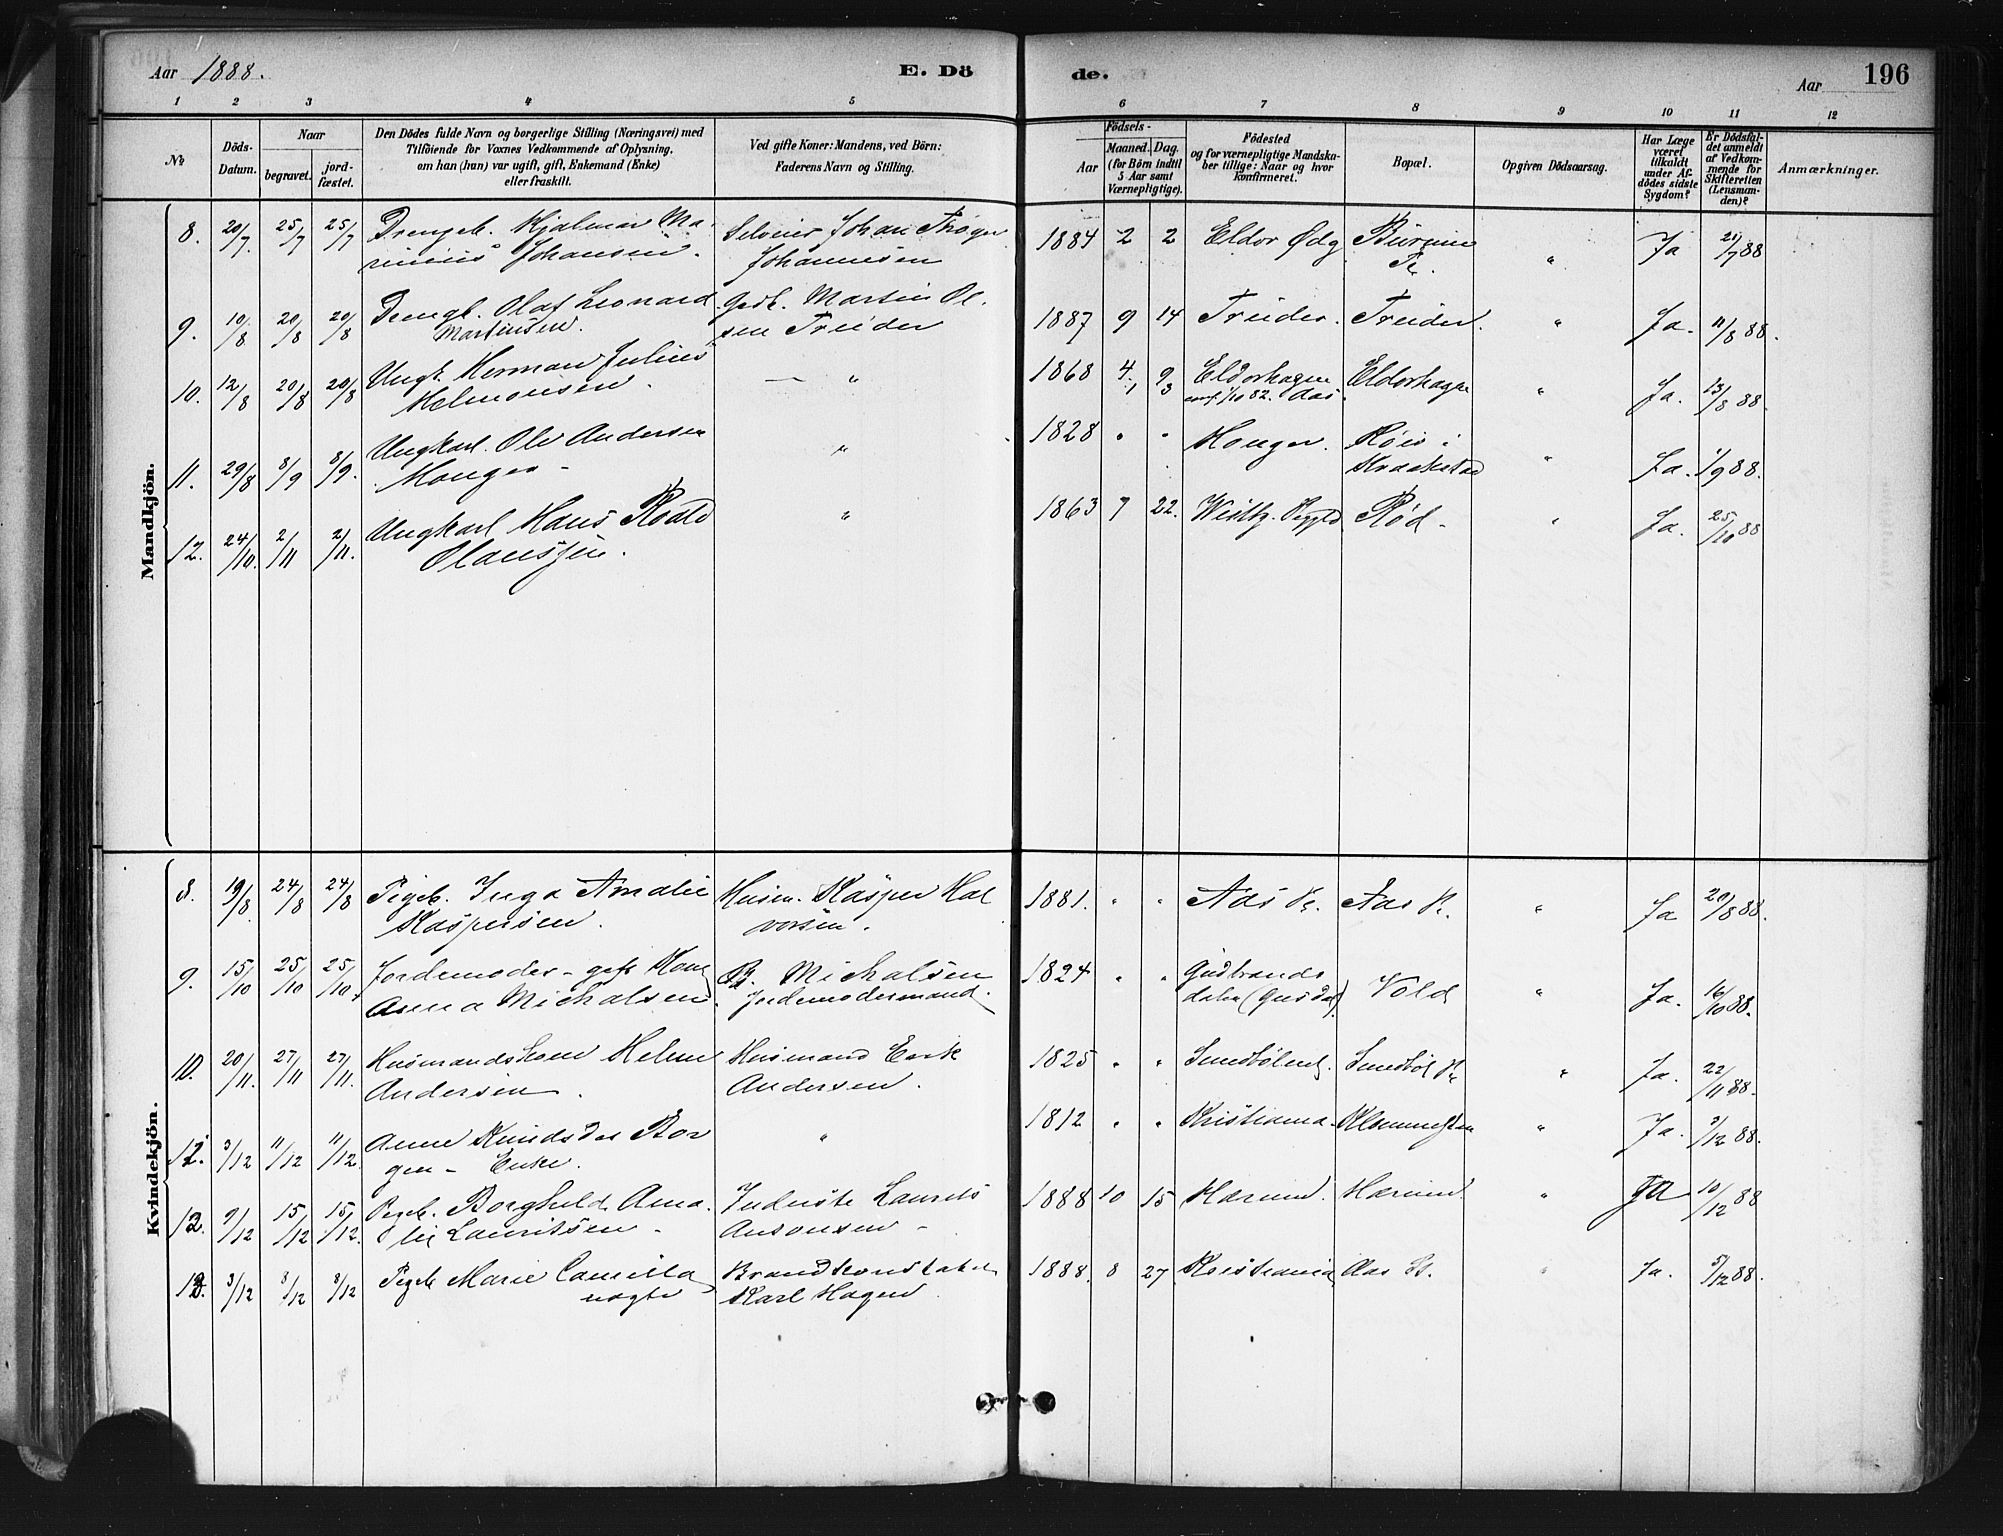 Aar 1888.
E. Dö
de.
Aar
196
1 2 3 4 5 6 7 8 9 10 11 12
No
Döds-Datum.
Naar
begravet.
jord-fæstet.
Den Dödes fulde Navn og borgerlige Stilling (Næringsvei) med
Tilföiende for Voxnes Vedkommende af Oplysning,
om han (hun) var ugift, gift, Enkemand (Enke)
eller fraskilt.
Ved gifte Koner: Mandens, ved Börn:
Faderens Navn og Stilling.
Födsels-
Aar
Maaned. Dag.
(for Börn indtil
5 Aar samt
Værnepligtige).
Födested
og for værnepligtige Mandska-
ber tillige: Naar og hvor
konfirmeret.
Bopæl.
Opgiven Dödsaarsag.
Har Læge
været
tilkaldt
under Af-
dödes sidste
Sygdom?
Er Dödsfal-
det anmeldt
af Vedkom-
mende for
Skifteretten
(Lensman-
den)?
Anmærkninger.
Mandkjön.
8. 20/7 25/7 25/7 Drengeb. Hjalmar Ma- Johan 1884 2 2 Eldor " Ja 21/7 88
rinius Johansen. Johannesen
9. 10/8 20/8 20/8 Drengb. Olaf Leonard Martin Ol- 1887 9 14 Treider. Treider. " Ja. 11/8 88.
Martinsen. sen Treider
10. 12/8 20/8 20/8 Ungk. Herman Julius — " 1868 4 9 Eldorhagen Eldorhagen " Ja. 13/8 88.
1/10 82. Aas.
11. 29/8 8/9 8/9. Ungkarl. Ole Andersen " 1828 " " Honger. " Ja. 1/9 88.
Honger - Kraakstad
12. 24/10. 2/11 2/11. Ungkarl Hans Roald " 1863 7 22. Rød - " Ja. 25/10 88
Olaussen.
Kvindekjön.
8. 19/8. 24/8 24/8 Pigeb. Inga Amalie Husm. Kasper Hal 1881. " " Aas Aas " Ja 20/8 88.
Kaspersen. vorsen.
9. 15/10 25/10 25/10. Jordemoder - gift Kone Michalsen 1824 " " Gudbrands Vold " Ja. 16/10 88.
Anna Michalsen. Jordemodermand. dalen
10. 20/11. 27/11 27/11. Husmandskone Helene Husmand Erik 1825 " " " Ja. 22/11 88.
Andersen. Andersen.
11. 3/12 11/12 11/12. Anne Knudsdr Bor " 1812 " " Kristiania " Ja. 3/12 88.
gen - Enke.
12. 9/12 15/12 15/12. Pigeb. Borghild Ama- Inderste Laurits 1888 10 15 Hærum. Hærum. " Ja 10/12 88
lie Lauritsen - Antonsen -
13. 3/12 8/12 8/12 Pigeb Marie Camilla Brandkonstabel 1888. 8 27 Kristiania Aas St. " Ja. 5/12 88.
uægte Karl Hagen.